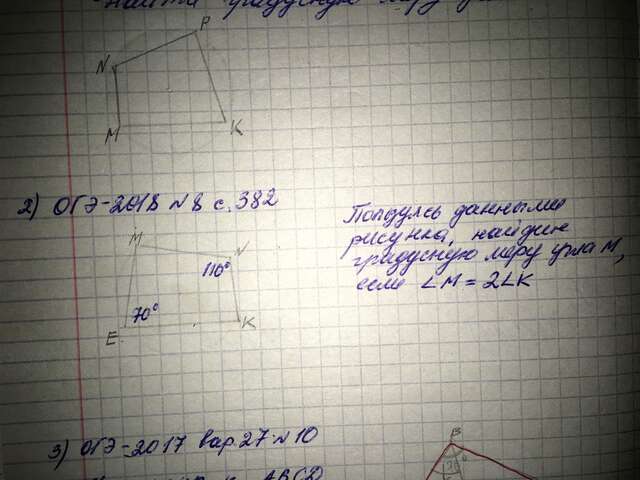 градусную
N
P
M
K
2) ОГЭ-2018 N 8 с. 382
M
N
110°
E
70°
K
Пользуясь данными
рисунка, найдите
градусную меру угла N,
если ∠M = 2∠K
3) ОГЭ-2017 Вар 27 N 10
B